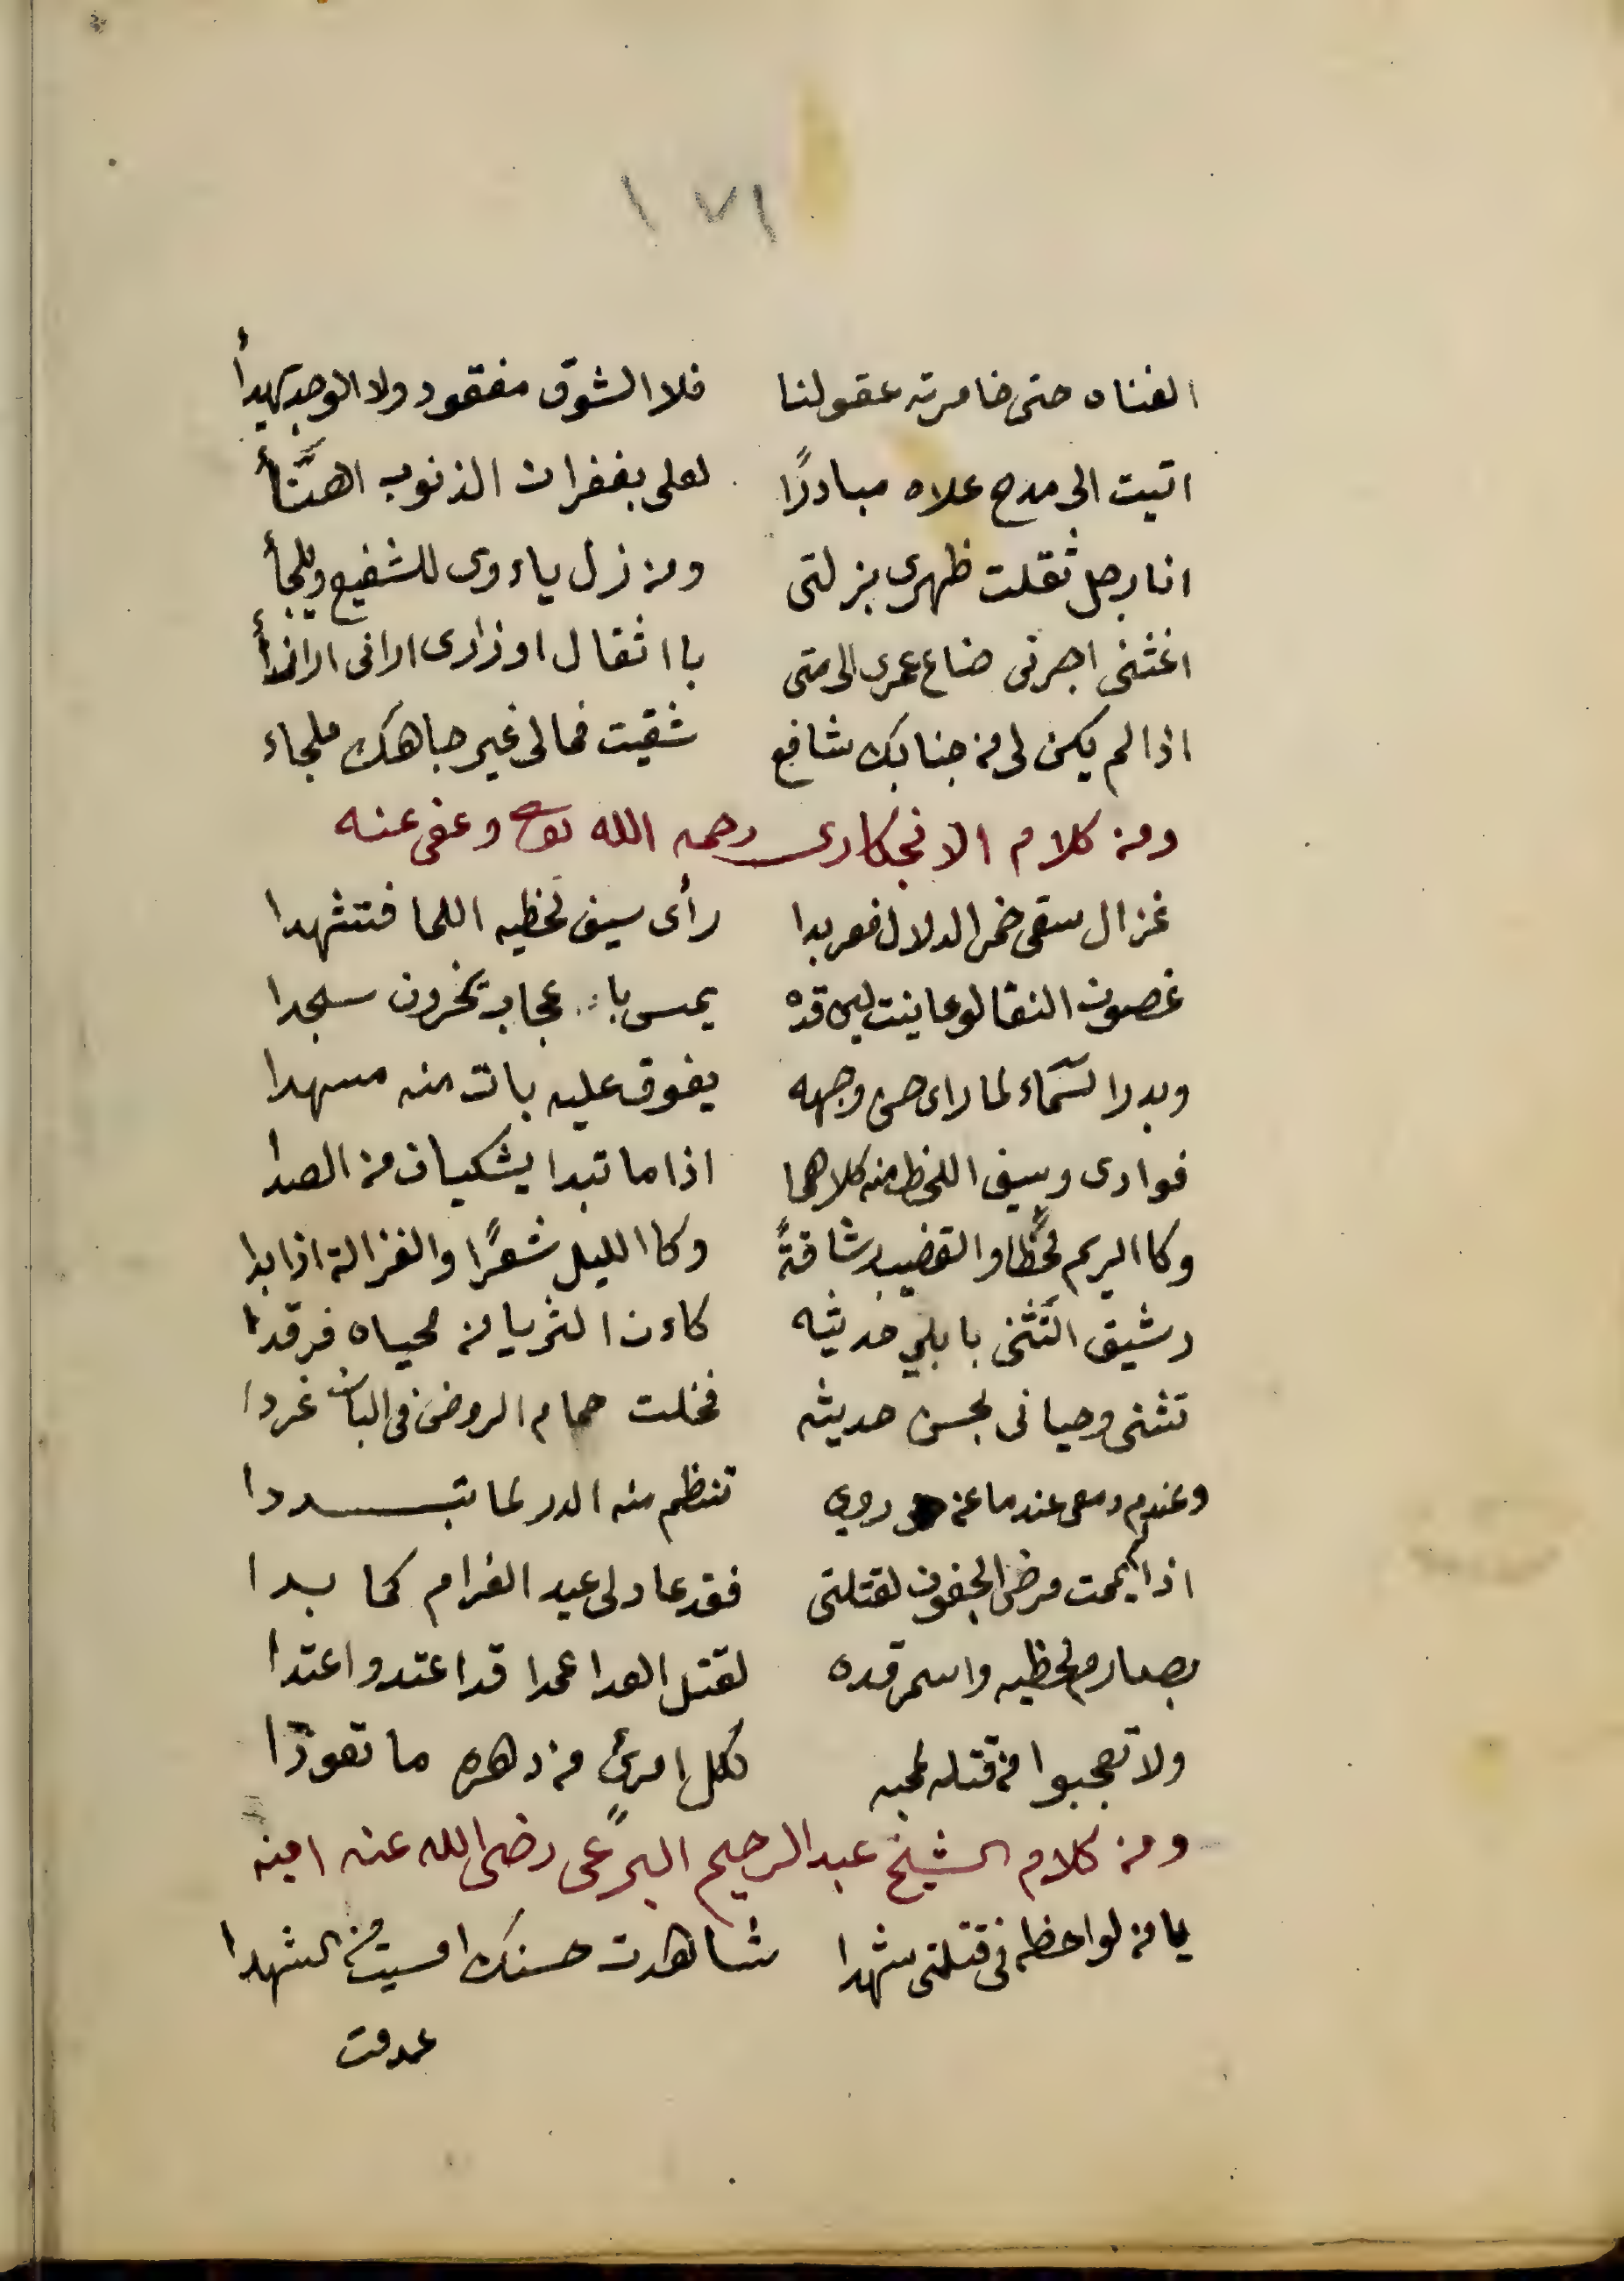 ١٧١
الفناه حتى خامرته عقولنا فلا الشوق مفقود ولا الوجد يهدأ
اتيت الى مدح علاه مبادرًا لعلى بغفران الذنوب اهنَّأ
انا رجل ثقلت ظهرى بزلتى ومن زل ياءوى للشفيع ويلجأ
اغثنى اجرنى ضاع عمرى الى متى با اثقال اوزارى ارانى ارانى
اذا لم يكن لى من جنابك شافع شقيت فمالى غير جاهك ملجاء
ومن كلام الانجكارى رحمه الله تعالى وعفى عنه
غزال سقى خمر الدلال فعربدا رأى سيف لحظيه اللما فتشهدا
غصون النقا لو عاينت لين قده يمس با عجاب تخرون سجدا
وبدر السماء لما راى حسن وجهه يفوق عليه بات منه مسهدا
فوادى وسيف اللحظ منه كلاهما اذا ما تبدا يشكيان من الصدا
وكا الريم لحظًا والقضيب رشاقةً وكا الليل شعرًا والغزالة اذا بدا
رشيق التَّثنى بابلي حديثه كاءن الثريا من محياه فرقدا
تثنى وحيانى بحسن حديثه فخلت حمام الروض فى البان غردا
وعندم دمعى عندما عن روي تنظم منه الدر لما تبددا
اذا يممت مرضى الجفون لقتلتى فقد عاد لى عيد الغرام كما بدا
بصارم لحظيه واسمر قده لقتل العدا عمدا قد اعتد واعتدا
ولا تعجبوا من قتله لمحبه لكل امرئ من دهره ما تعودا
ومن كلام الشيخ عبد الرحيم البرعى رضى الله عنه امين
يا من لواحظه فى قتلتى شهدا شاهدت حسنك امسيت من الشهدا
عدمت